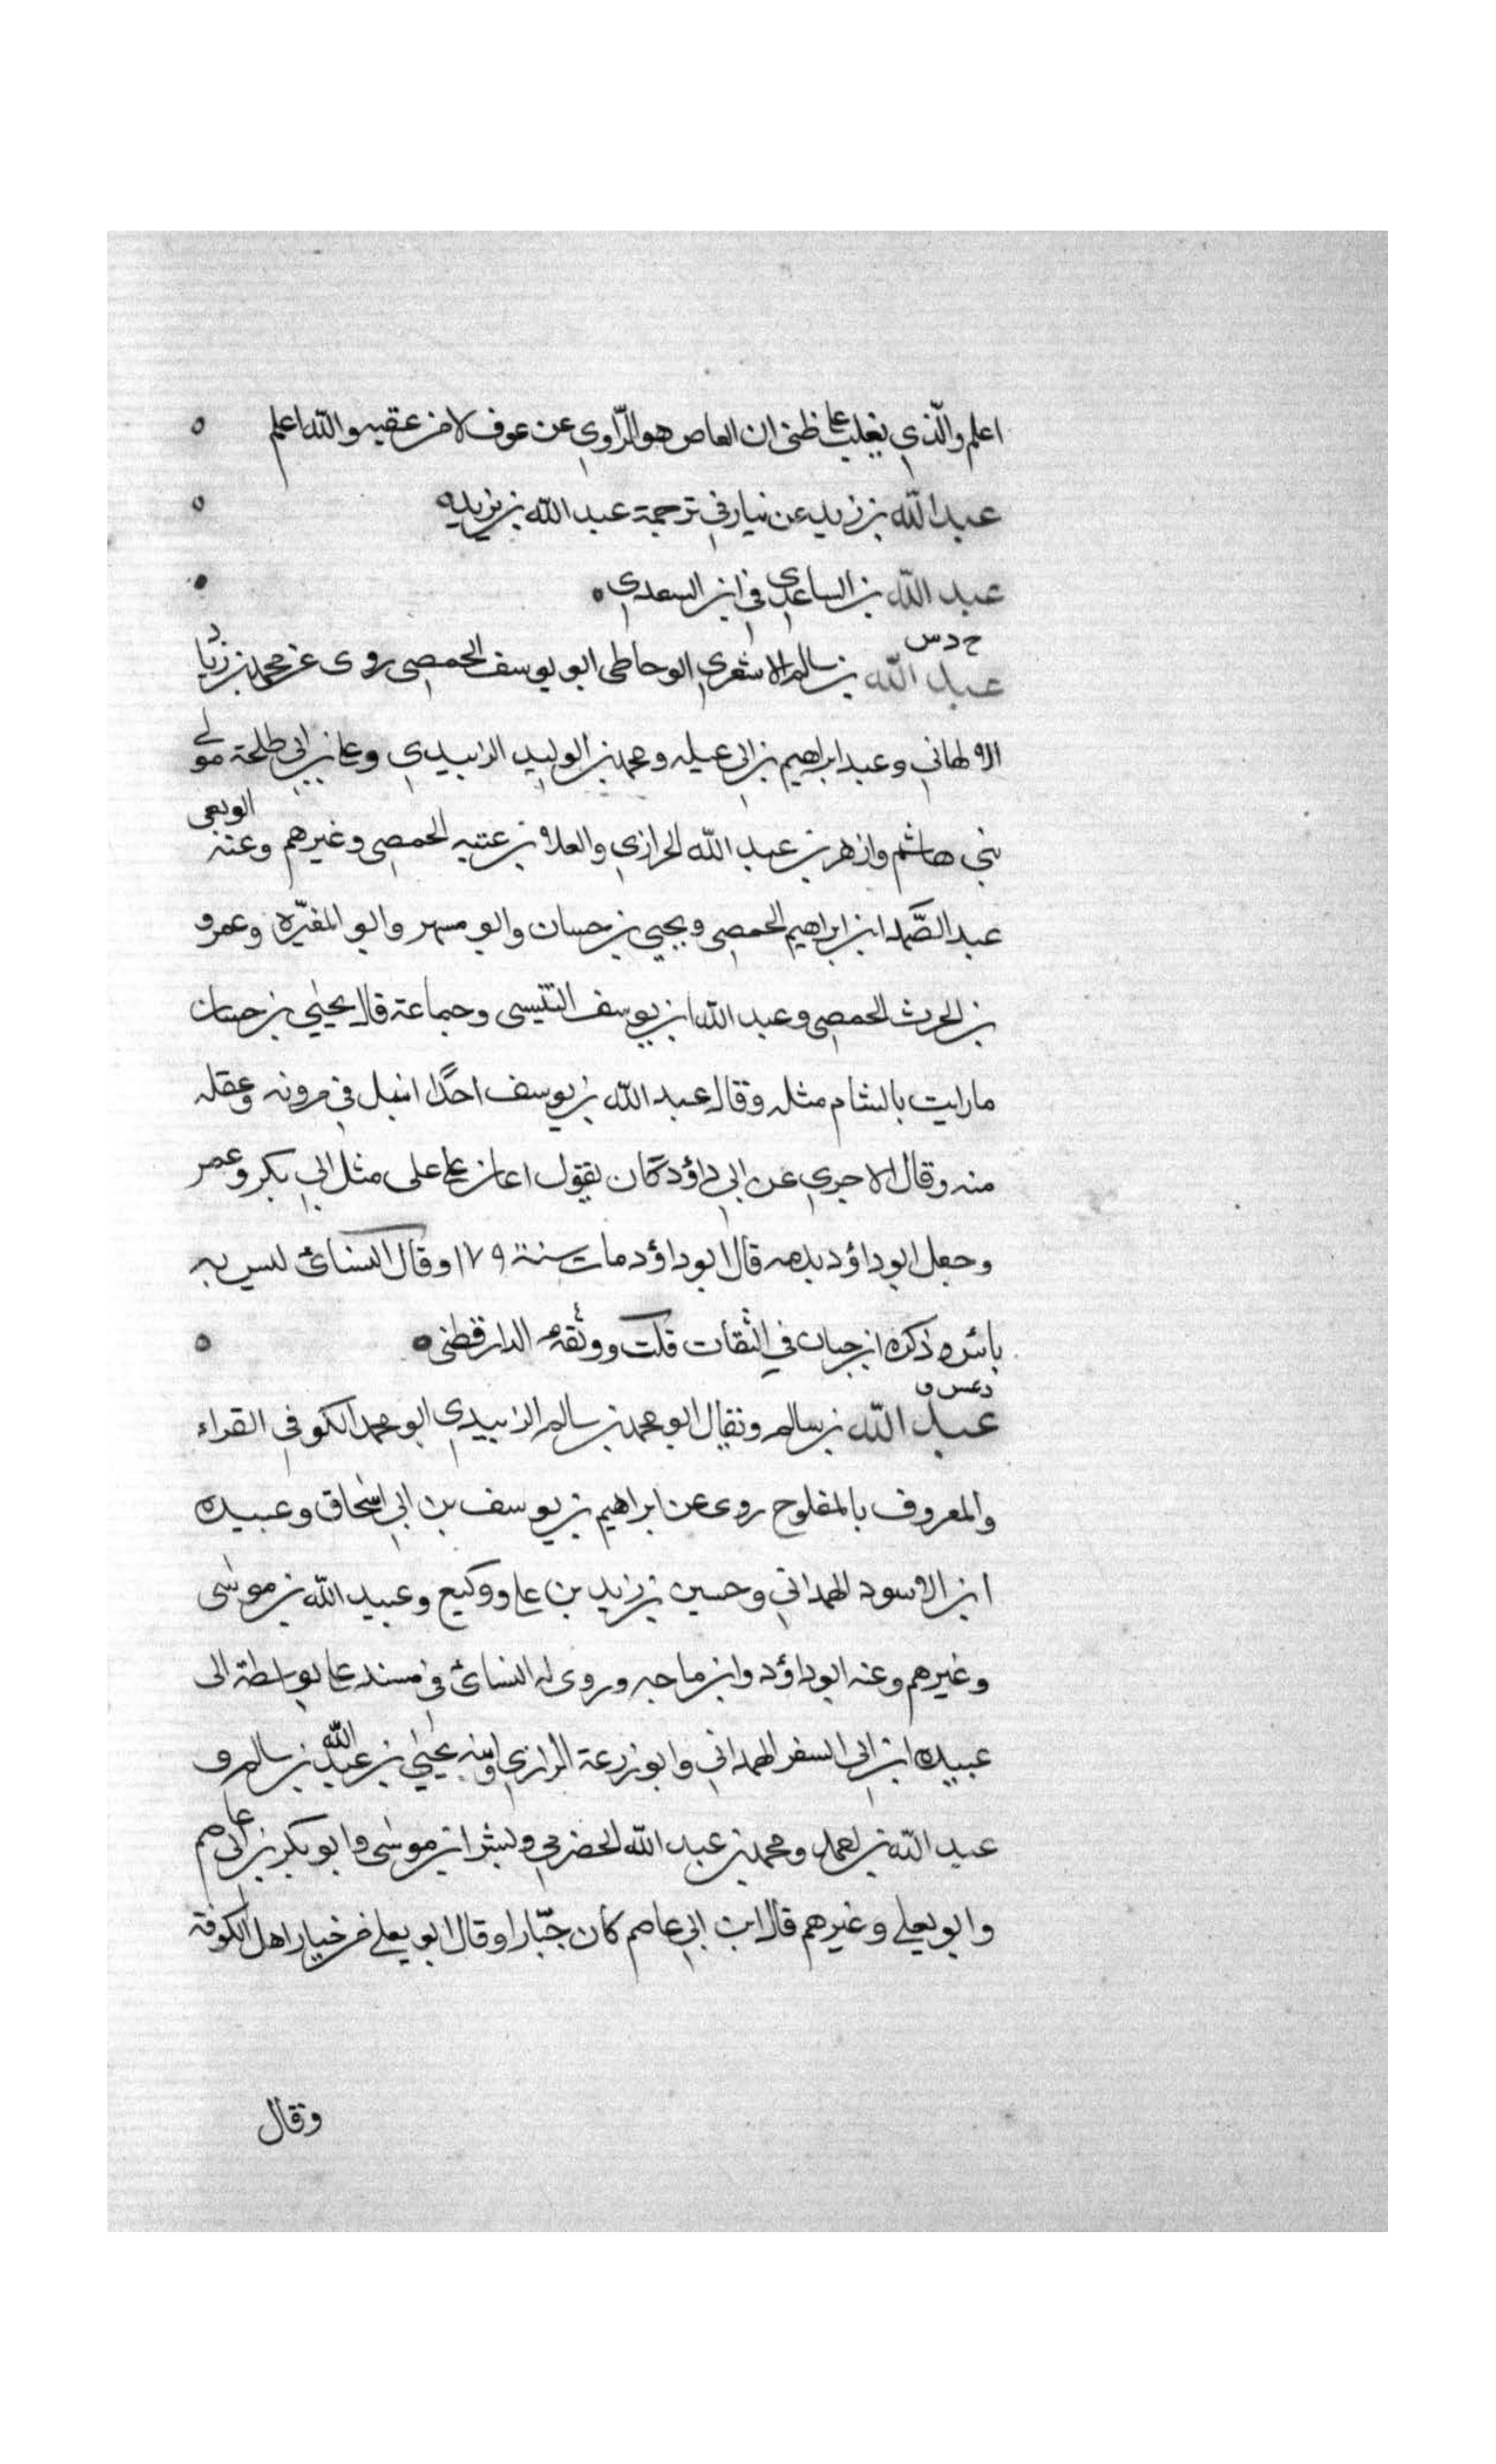 اعلم والّذي يغلب على ظنى ان العاص هو الرّاوي عن عوف لا من عقيه والله اعلم ه
عبد الله بن زيد عن نيار في ترجمة عبد الله بن يزيد ه
عبد الله بن الساعدي في ابن السعدي ه
خ د س
عبد الله بن سالم الاشعري الوحاطى ابو يوسف الحمصى روى عن محمد بن زياد
الالهاني وعبد ابراهيم بن ابى عبله ومحمد بن الوليد الزبيدي وعلى بن ابي طلحة مولى
بني هاشم وازهر بن عبد الله الحرازي والعلا بن عتبه الحمصى وغيرهم وعنه
عبد الصّمد ابن ابراهيم الحمصى ويحيى بن حسان وابو مسهر وابو المغيره وعمرو
بن الحرث الحمصى وعبد الله ابن يوسف التنيسى وجماعة قال يحيى بن حسان
مارايت بالشام مثله وقال عبد الله بن يوسف احدًا انبل في مرونه وعقله
منه وقال الاجري عن ابي داؤد كان يقول اعان على على مثل ابي بكر وعمر
وجعل ابو داؤد يذمه قال ابو داؤد مات سنة ١٧٩ وقال النسائ ليس به
باس وذكره ابن حبان في الثقات قلت ووثقه الدارقطنى ه
د عس ق
عبد الله بن سالم ونقال ابو محمد بن سالم الزبيدي ابو محمد الكوفي القراء
والمعروف بالمفلوح روى عن ابراهيم بن يوسف بن ابي اسحاق وعبيده
ابن الاسود الهمداني وحسين بن زيد بن على ووكيع وعبيد الله بن موسى
وغيرهم وعنه ابو داؤد وابن ماجه وروى له النسائ في مسند على بواسطة ابى
عبيده ابن ابى السفر الهمداني وابو زرعة الرازي وابنه يحيى بن عبد الله بن سالم و
عبد الله بن احمد ومحمد بن عبد الله الحضرمي وبشر ابن موسى وابو بكر بن ابى عاصم
وابو يعلى وغيرهم قال ابن ابي عاصم كان جبّارا وقال ابو يعلى من خيار اهل الكوفة
وقال